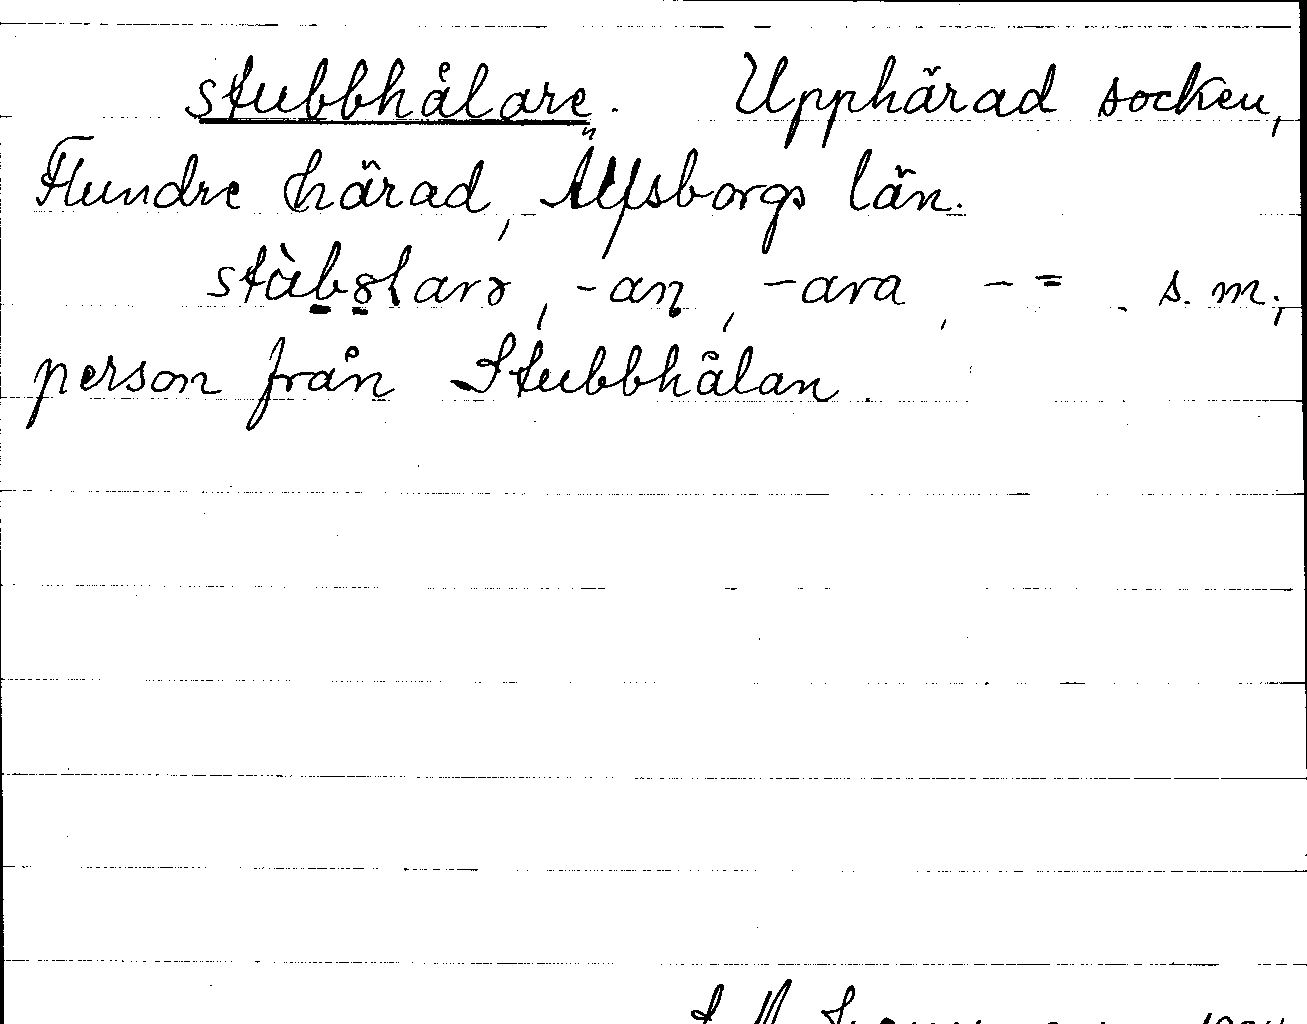 stubbhålare. Upphärad socken,
Flundre härad, Älfsborgs län.
-an, -ara, - = . s. m.;
person från Stubbhålan.